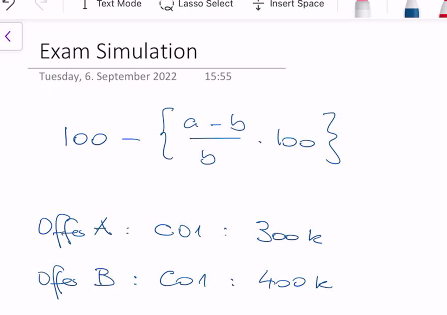 Text Mode Lasso Select Insert Space
Exam Simulation
Tuesday, 6. September 2022 15:55
100 - { (a - b) / b · 100 }
Offer A : C01 : 300k
Offer B : C01 : 400k